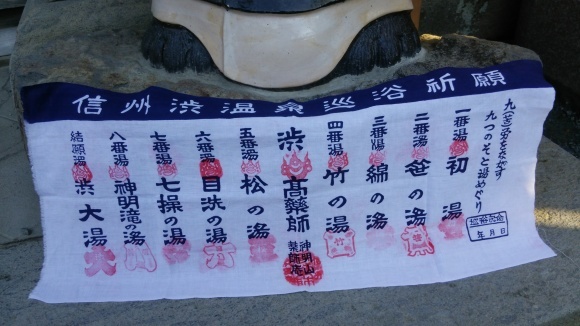 信州渋温泉巡浴祈願
九(苦)労をながす
九つのそと湯めぐり
巡浴祈願
年 月 日
一番湯 初湯
二番湯 笹の湯
三番湯 綿の湯
四番湯 竹の湯
渋 高薬師
神明山
薬師庵
五番湯 松の湯
六番湯 目洗の湯
七番湯 七操の湯
八番湯 神明滝の湯
結願湯 渋大湯